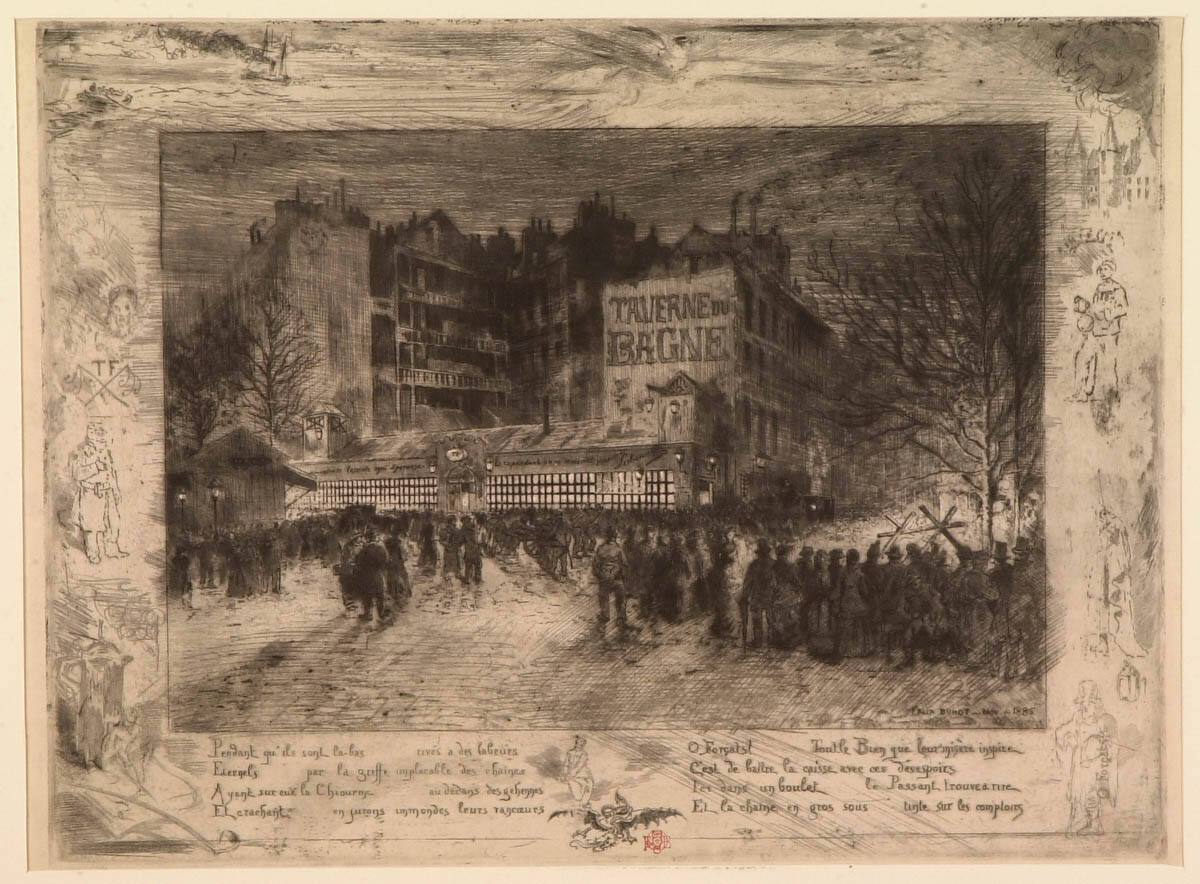 TF
TAVERNE DU
BAGNE
FELIX BUHOT 1885
Pendant qu'ils sont la-bas rives a des labeurs
Eternels par la griffe implacable des chaines
Ayant sur eux la Chiourme au dedans des gehennes
Et crachant en jurons immondes leurs rancœurs
O Forçats! Tout le Bien que leur misère inspire
C'est de battre la caisse avec ces desespoirs
Ici dans un boulet le Passant trouve a rire
Et la chaine en gros sous tinte sur les comptoirs
O Forçats!